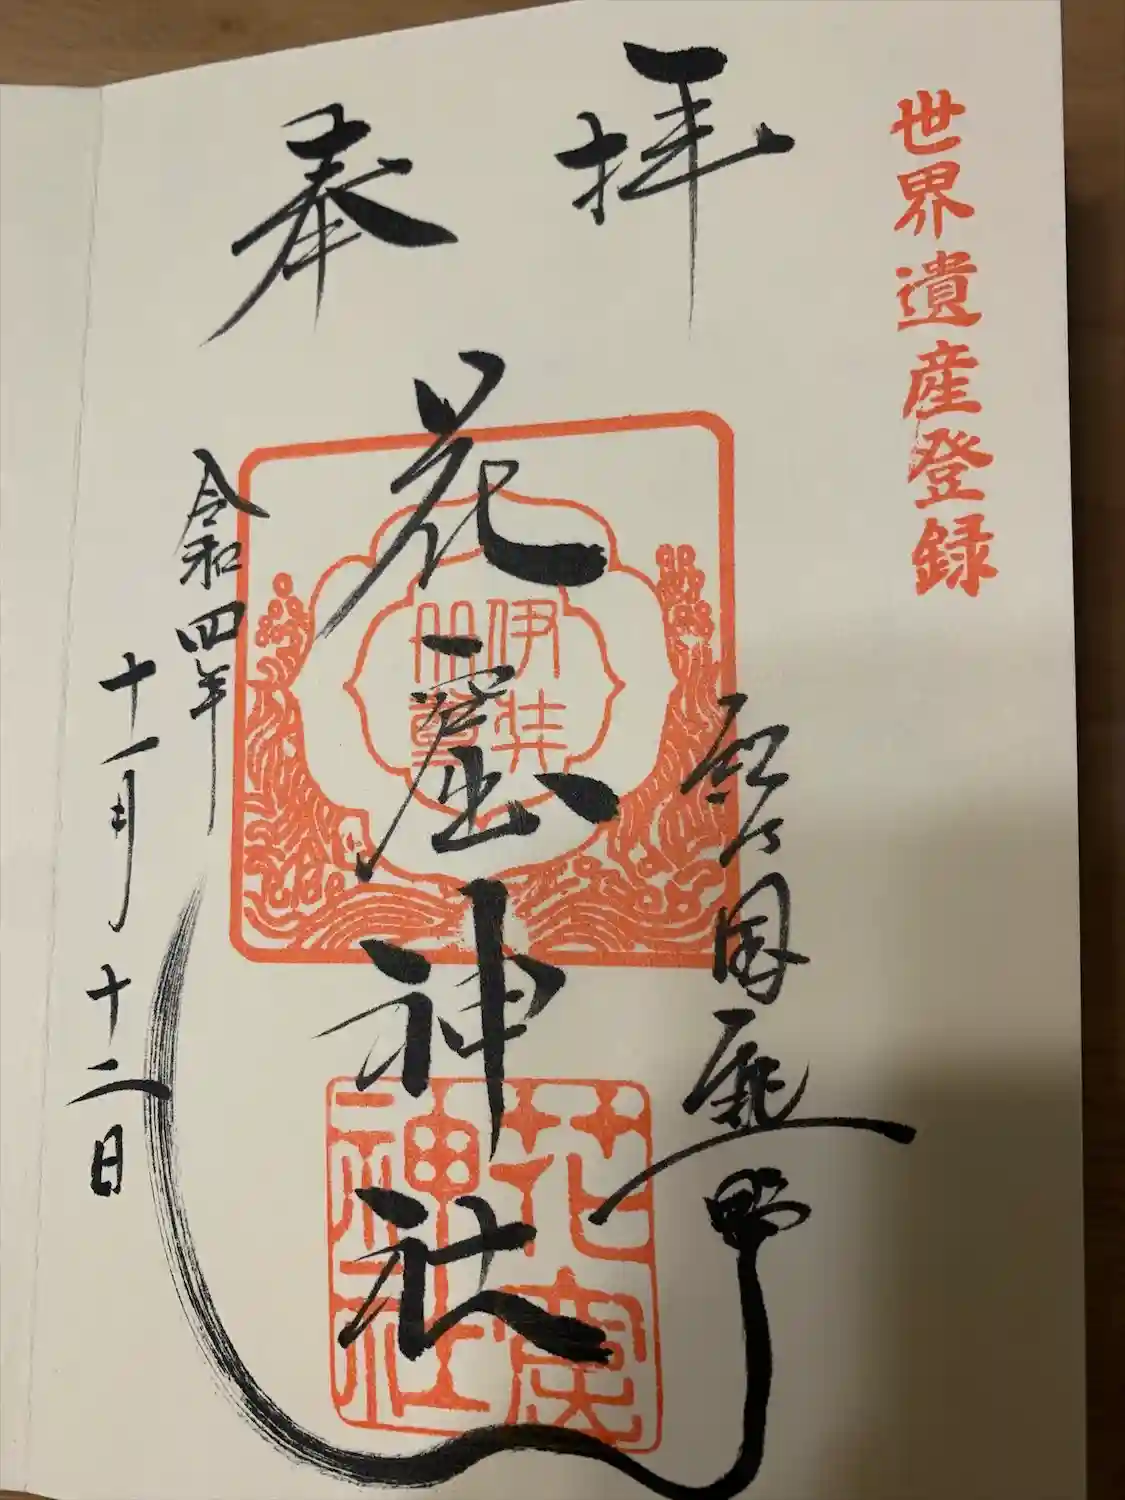 世界遺産登録
奉拝
花窟神社
伊弉
冊尊
花窟
神社
令和四年
十一月十二日